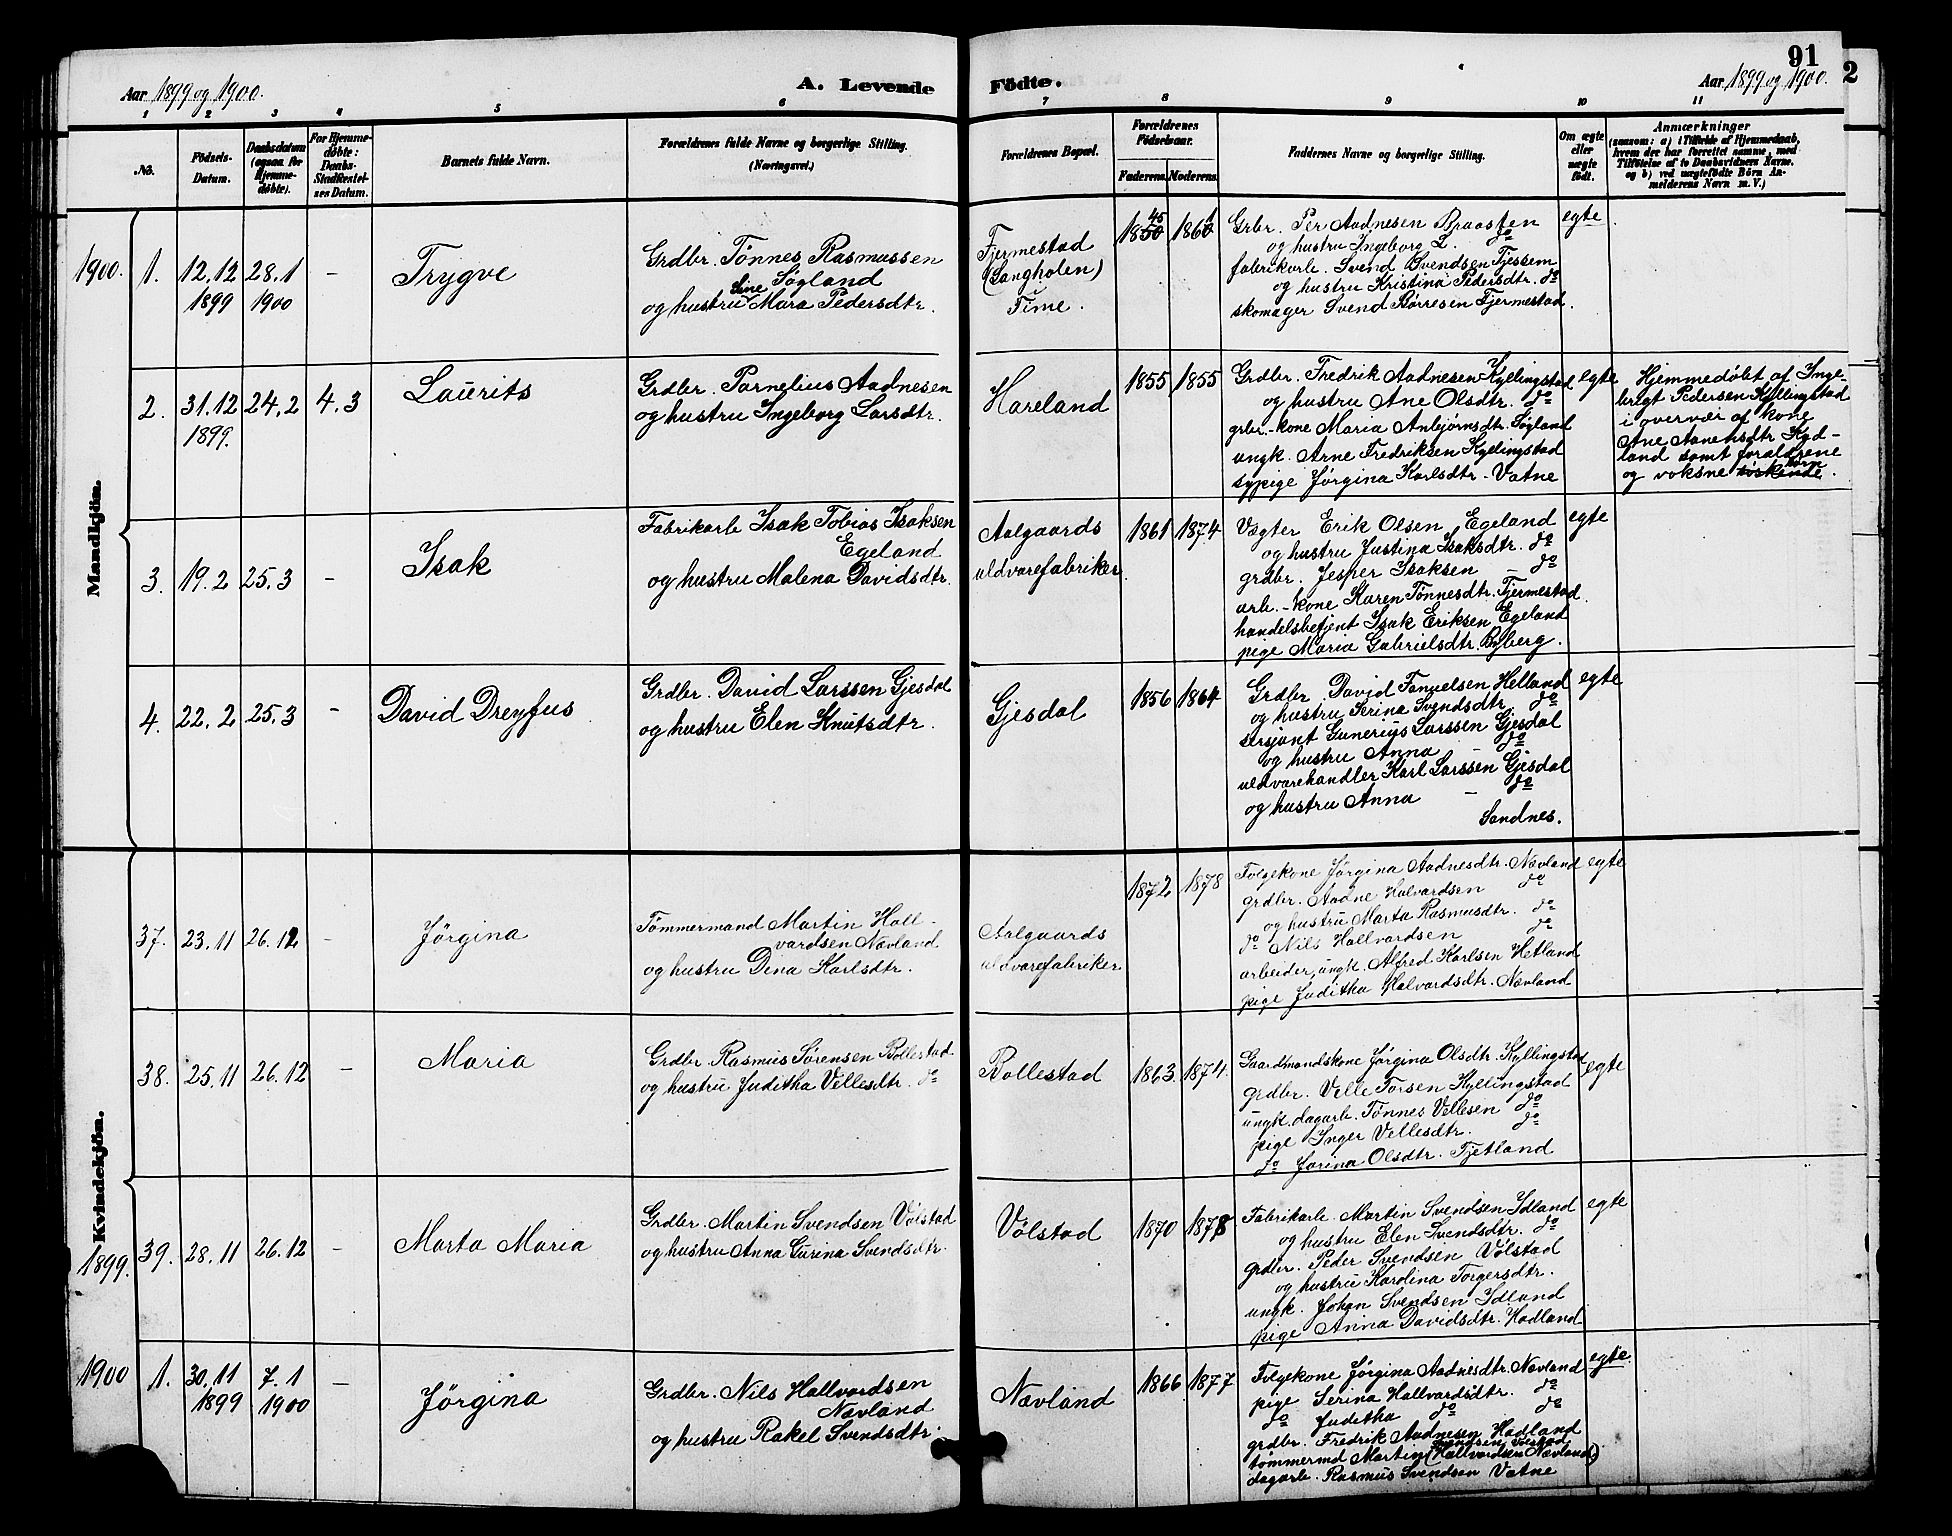 91
2
Aar 1899 og 1900.
A. Levende
Födte.
Aar 1899 og 1900.
1 2 3 4 5 6 7 8 9 10 11
No.
Födsels-
Datum.
Daabsdatum
(ogsaa for
Hjemme-
döbte).
For Hjemme-
döbte:
Daabs-
Stadfæstel-
ses Datum.
Barnets fulde Navn.
Forældrenes fulde Navne og borgerlige Stilling.
(Næringsvei.)
Forældrenes Bopæl.
Forældrenes
Födselsaar.
Faderens. Moderens.
Faddernes Navne og borgerlige Stilling.
Om ægte
eller
uægte
födt.
Anmærkninger
(saasom: a) i Tilfælde af Hjemmedaab,
hvem der har forrettet samme, med
Tilföielse af to Daabsvidners Navne.
og b) ved uægtefödte Börn An-
melderens Navn m. V.)
Mandkjön.
1900.
1.
12.12
1899
28.1
1900
–
Trygve
Grdbr. Tønnes Rasmussen
Søgland
og hustru Sine Mara Pedersdtr.
Fjermestad
(Langholen)
Time.
1850 45
1860 1
Grbr. Per Aadnesen Braasten
og hustru Ingeborg L. do
fabrikarb. Svend Svendsen Tjessem
og hustru Kristina Pedersdtr. do
skomager Svend Børresen Fjermestad.
egte
2.
31.12
1899.
24.2
4.3
Laurits
Grdbr. Parnelius Aadnesen
og hustru Ingeborg Larsdtr.
Hareland
1855
1855
Grdbr. Fredrik Aadnesen Kyllingstad
og hustru Ane Olsdtr. do
grbr.-kone Maria Anbjørnsdtr. Søgland
ungk. Arne Fredriksen Kyllingstad
sypige Jørgina Karlsdtr. Vatne
egte
Hjemmedøbt af Inge-
brigt Pedersen Kyllingstad
i overvær af kone
Ane Aanensdtr Kyd-
land samt forældrene
og voksne søskende børn.
3.
19.2
25.3
–
Isak
Fabrikarb Isak Tobias Isaksen
Egeland
og hustru Malena Davidsdtr.
Aalgaards
uldvarefabriker.
1861
1874
Vægter Erik Olsen Egeland
og hustru Justina Isaksdtr. do
grdbr. Jesper Isaksen – do
arb.-kone Karen Tønnesdtr. Fjermestad.
handelsbetjent Isak Eriksen Egeland
pige Maria Gabrielsdtr. Byberg.
egte
4.
22.2
25.3
–
David Dreyfus
Grdbr. David Larssen Gjesdal
og hustru Elen Knutsdtr.
Gjesdal
1856
1864
Grdbr. David Fanuelsen Helland
og hustru Serina Svendsdtr. do
sersjant Gunerius Larssen Gjesdal
og hustru Anna – do
uldvarehandler Karl Larssen Gjesdal
og hustru Anna – do
Sandnes.
egte
Kvindekjön.
37.
23.11
26.12
–
Jörgina
Tømmermand Martin Hall-
vardsen Nævland
og hustru Dina Karlsdtr.
Aalgaards
uldvarefabriker
1872
1878
Følgekone Jørgina Aadnesdtr. Nævland
grdbr. Aadne Halvardsen do
og hustru Marta Rasmusdtr. do
do Nils Hallvardsen do
arbeider, ungk. Alfred Karlsen Hetland
pige Juditha Halvardsdtr. Nævland
egte
38.
25.11
26.12
–
Maria
Grdbr. Rasmus Sørensen Bollestad
og hustru Juditha Vellesdtr. do
Bollestad
1863.
1874.
Gaardmandskone Jørgina Olsdtr. Kyllingstad
grdbr. Velle Torsen Kyllingstad
ungk. dagarb. Tønnes Vellesen do
pige Inger Vellesdtr. do
do Jorina Olsdtr. Tjetland
egte
1899.
39.
28.11
26.12
–
Marta Maria
Grdbr. Martin Svendsen Vølstad
og hustru Anna Gurina Svendsdtr.
Vølstad
1870
1878
Fabrikarb. Martin Svendsen Idland
og hustru Elen Svendsdtr. do
grdbr. Peder Svendsen Vølstad
og hustru Karolina Torgersdtr.
ungk. Johan Svendsen Idland
pige Anna Davidsdtr. Hadland
egte
1900
1.
30.11
1899
7.1
1900
–
Jörgina
Grdbr. Nils Hallvardsen
Nævland
og hustru Rakel Svendsdtr.
Nævland
1866
1877
Følgekone Jørgina Aadnesdtr. Nævland
pige Serina Hallvardsdtr. do
do Juditha do do
grdbr. Fredrik Aadnesen Hadland
Svendsen Vølstad
tømmermd Martin (Hallvardsen Nævland)
dagarb. Rasmus Svendsen Vatne
egte.